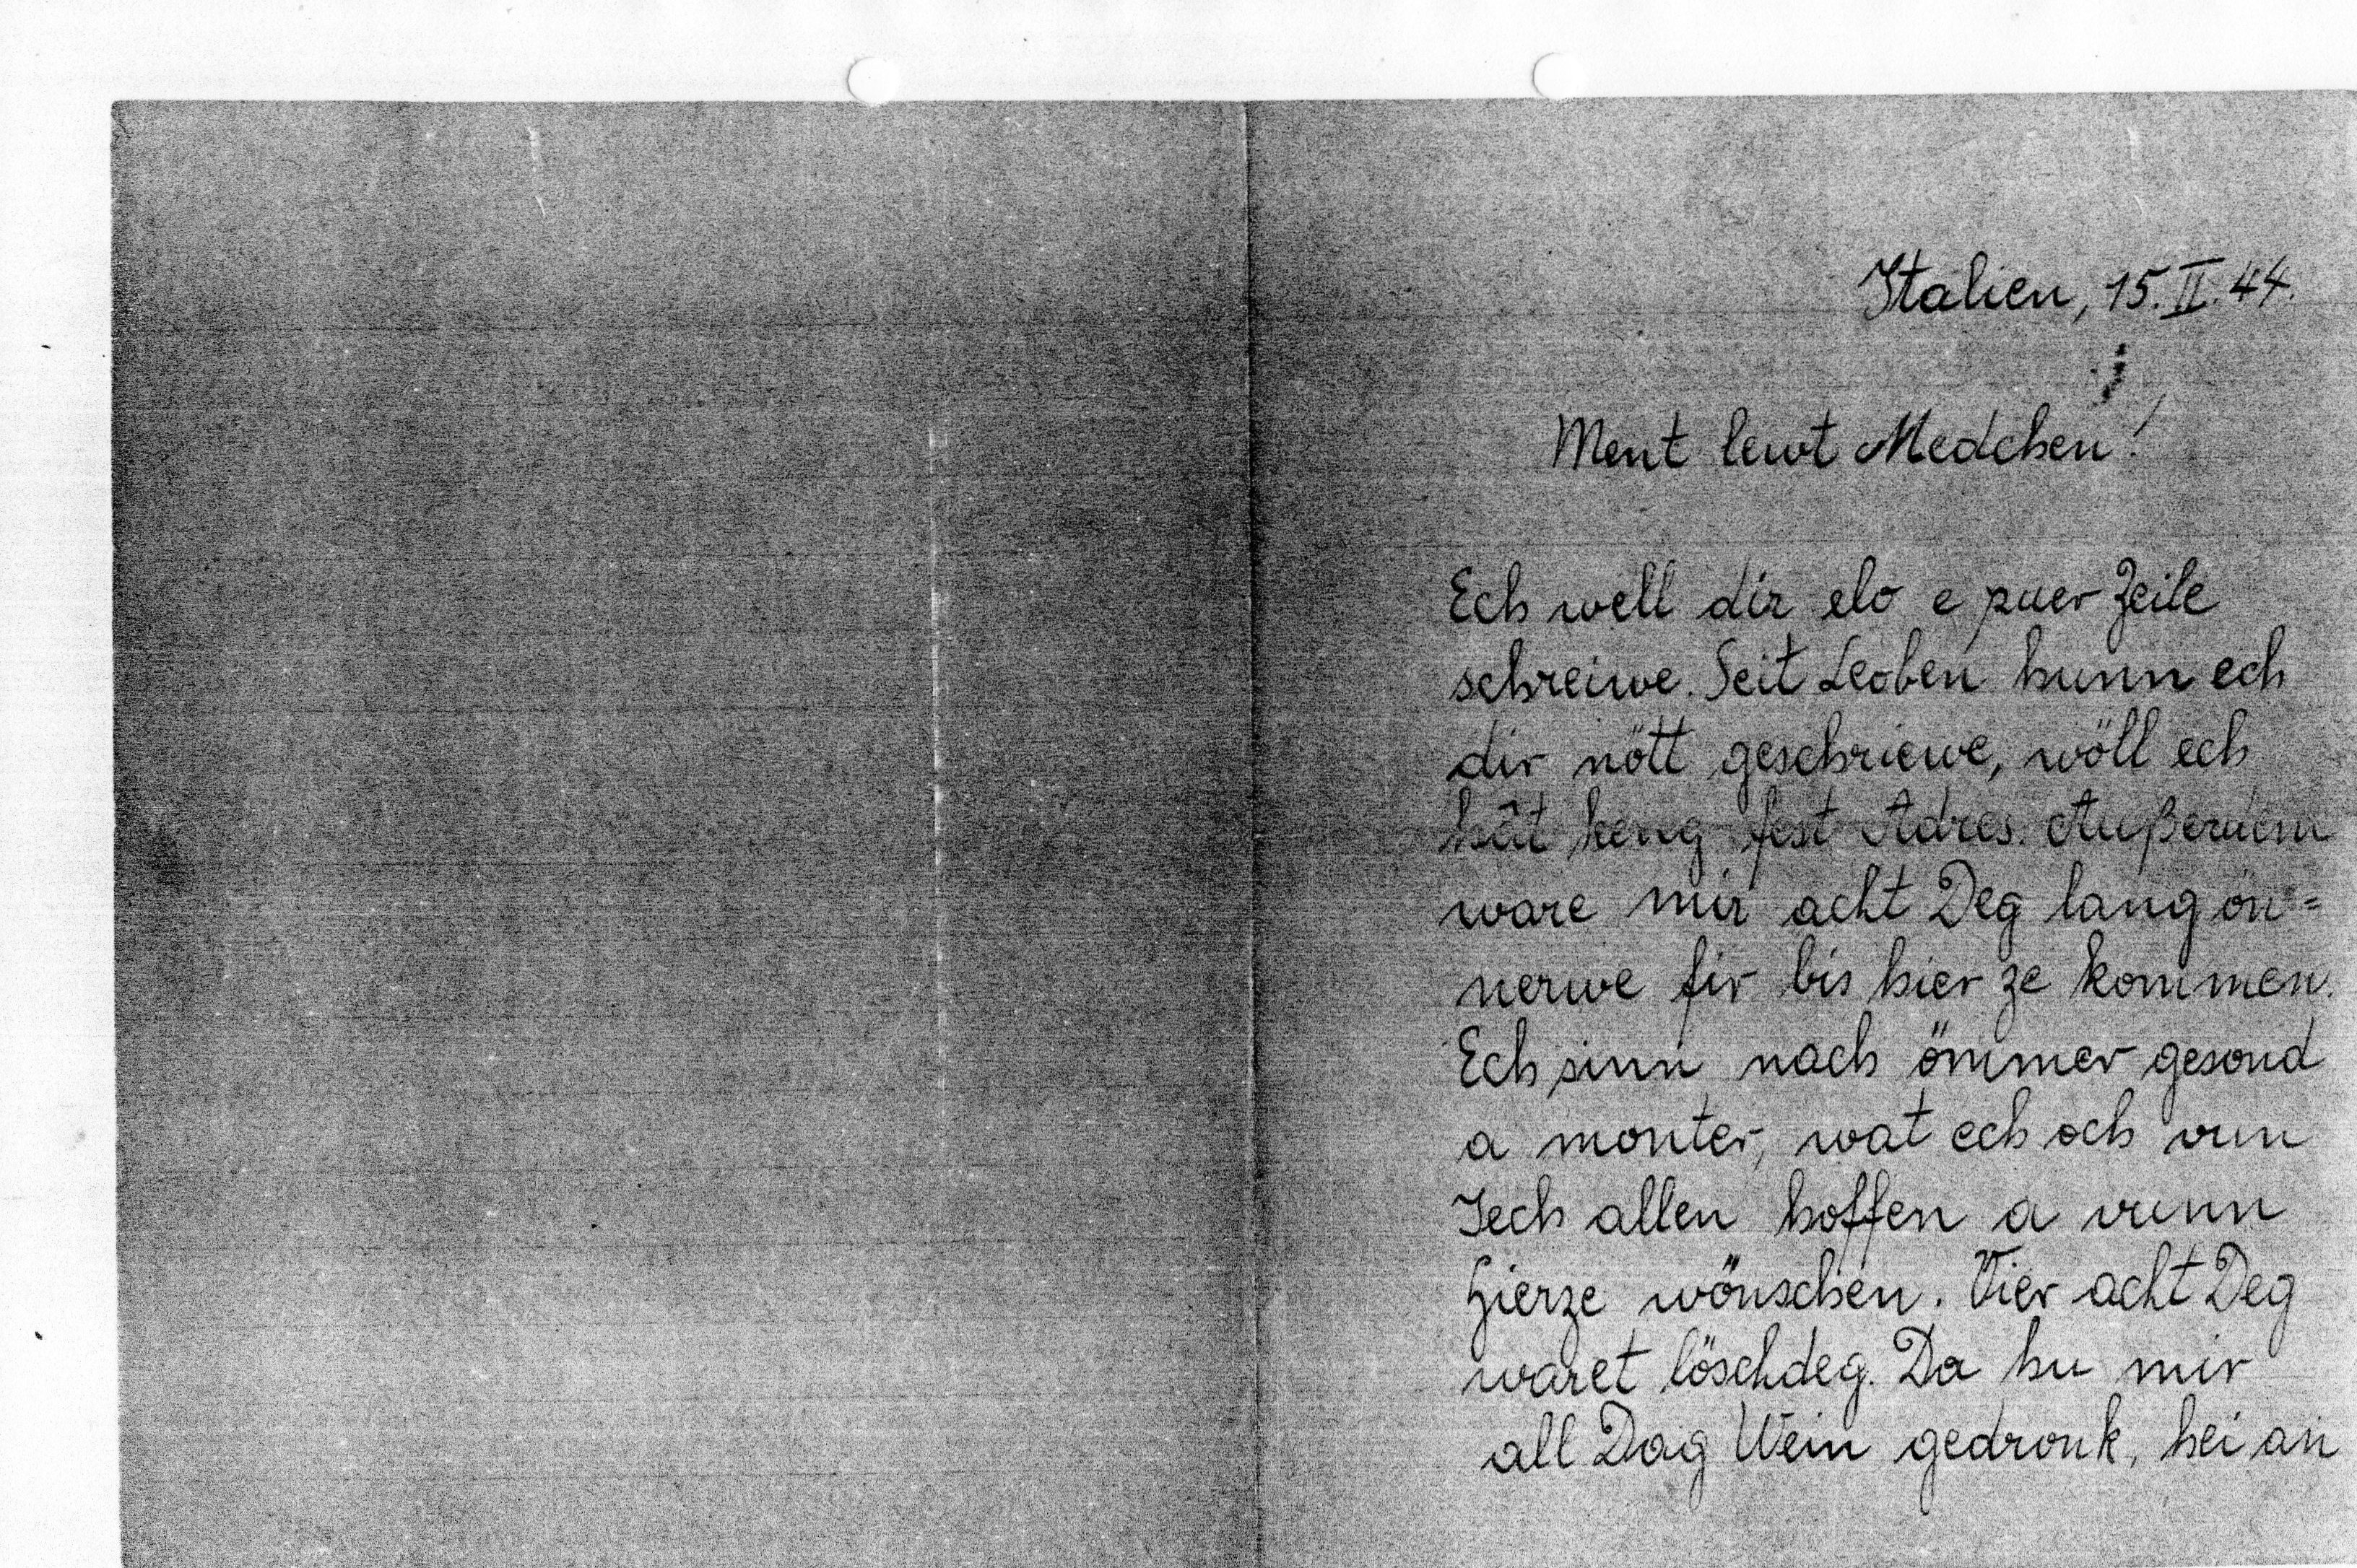 Italien, 15. II. 44.
Ment lewt Medchen!
Ech well dir elo e puer Zeile
schreiwe. Seit Leoben hunn ech
dir nött geschriewe, wöll ech
hät keng fest Adres. Außerdem
ware mir acht Deg lang ön=
nerwe fir bis hier ze kommen.
Ech sinn nach ömmer gesond
a monter, wat ech och vun
Iech allen hoffen a vunn
Hierze wönschen. Vier acht Deg
waret löschdeg. Da hu mir
all Dag Wein gedronk, hei an